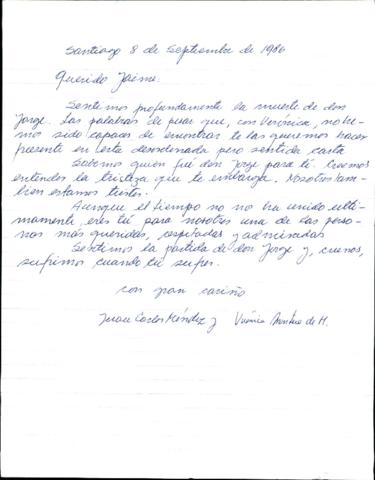 Santiago 8 de Septiembre de 1986
Querido Jaime:
Sentimos profundamente la muerte de don
Jorge. Las palabras de pesar que, con Verónica, no he-
mos sido capaces de encontrar te las queremos hacer
presente en esta desordenada pero sentida carta
Sabemos quien fué don Jorge para tí. Creemos
entender la tristeza que te embarga. Nosotros tam-
bien estamos tristes.
Aunque el tiempo no no ha unido ulti-
mamente, eres tú para nosotros una de las perso-
nas más queridas, respetadas y admiradas
Sentimos la partida de don Jorge y, creenos,
sufrimos cuando tú sufres.
con gran cariño
Juan Carlos Méndez y Verónica de M.